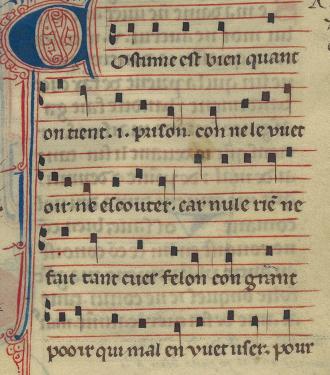 Costume est bien quant
on tient .i. prison. con ne le vuet
oir. ne escouter. car nule riē ne
fait tant cuer felon con grant
pooir qui mal en vuet user. pour